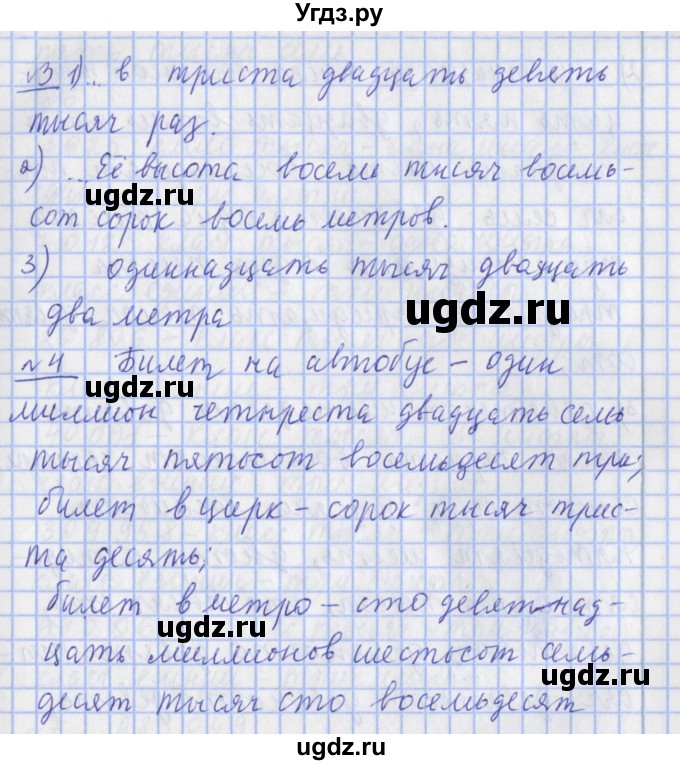 Угдз.ру
№3 1)... в триста двадцать девять
тысяч раз.
2) ...Её высота восемь тысяч восемь-
ugdz.ru
сот сорок восемь метров.
3) одиннадцать тысяч двадцать
ugdz.ru
два метра
№4 Билет на автобус – один
ugdz.ru
миллион четыреста двадцать семь
тысяч пятьсот восемьдесят три;
билет в цирк – сорок тысяч трис-
та десять;
билет в метро – сто девятнад-
ugdz.ru
цать миллионов шестьсот семь-
ugdz.ru
десят тысяч сто восемьдесят
ugdz.ru